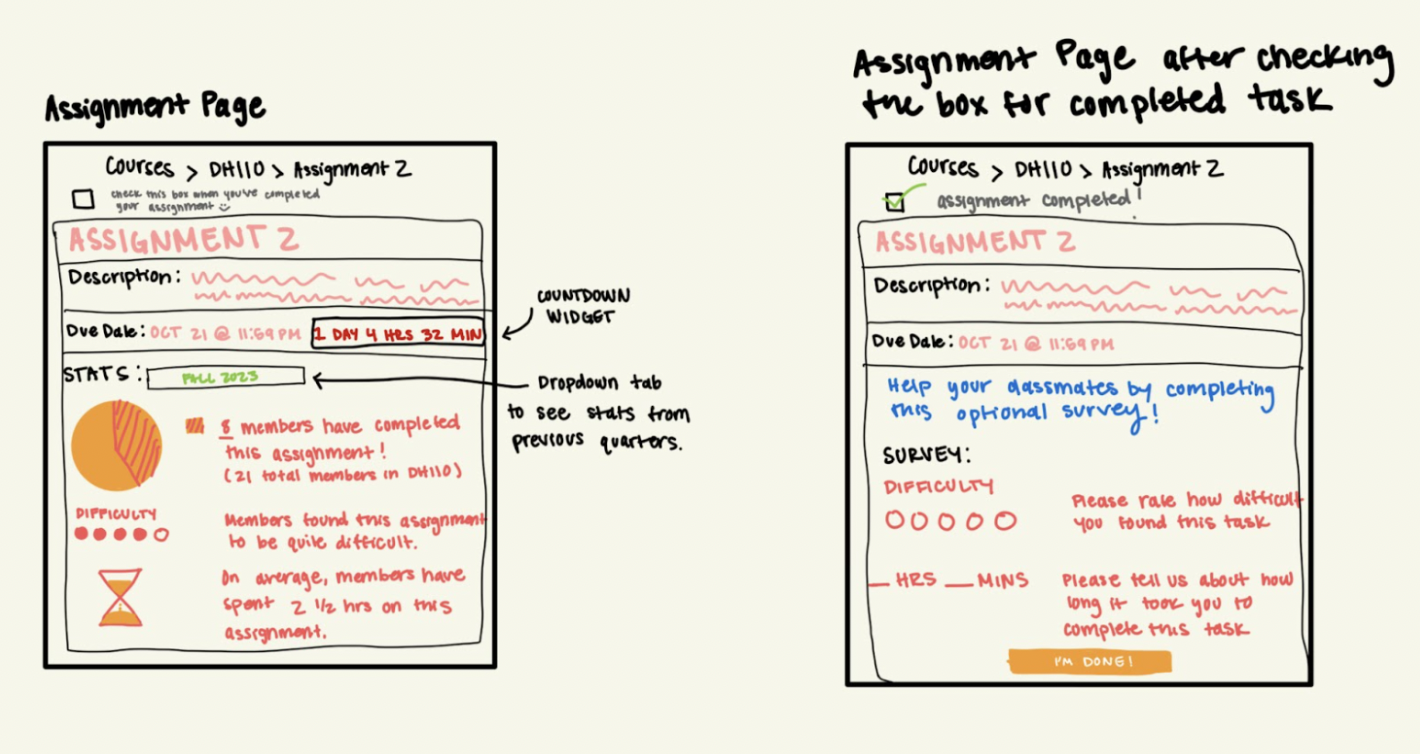 Assignment Page
Courses > DH110 > Assignment 2
check this box when you've completed
your assignment
ASSIGNMENT 2
Description:
Due Date: OCT 21 @ 11:59 PM 1 DAY 4 HRS 32 MIN
STATS: FALL 2023
8 members have completed
this assignment!
(21 total members in DH110)
DIFFICULTY
Members found this assignment
to be quite difficult.
On average, members have
spent 2 1/2 hrs on this
assignment.
COUNTDOWN
WIDGET
Dropdown tab
to see stats from
previous quarters.
Assignment Page after checking
the box for completed task
Courses > DH110 > Assignment 2
assignment completed!
ASSIGNMENT 2
Description:
Due Date: OCT 21 @ 11:59 PM
Help your classmates by completing
this optional survey!
SURVEY:
DIFFICULTY
Please rate how difficult
you found this task
__ HRS __ MINS
Please tell us about how
long it took you to
complete this task
I'M DONE!